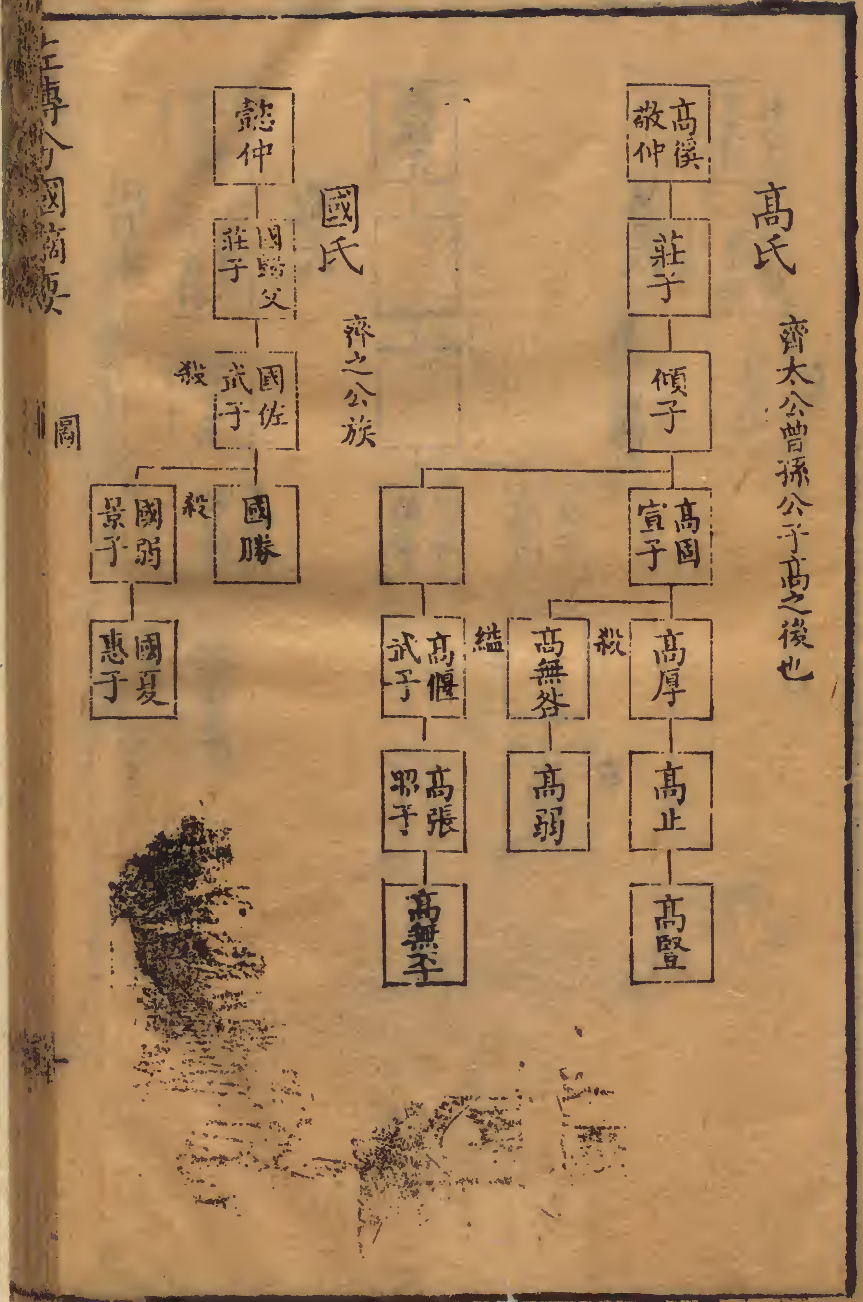 高氏
齊太公曾孫公子高之後也
高傒
敬仲
莊子
傾子
高固
宣子
高厚
殺
高止
高豎
高無咎
縊
高弱
高偃
武子
高張
昭子
高無㔻
國氏
齊之公族
懿仲
國歸父
莊子
國佐
武子
殺
國勝
殺
國弱
景子
國夏
惠子
左傳分國摘要
圖